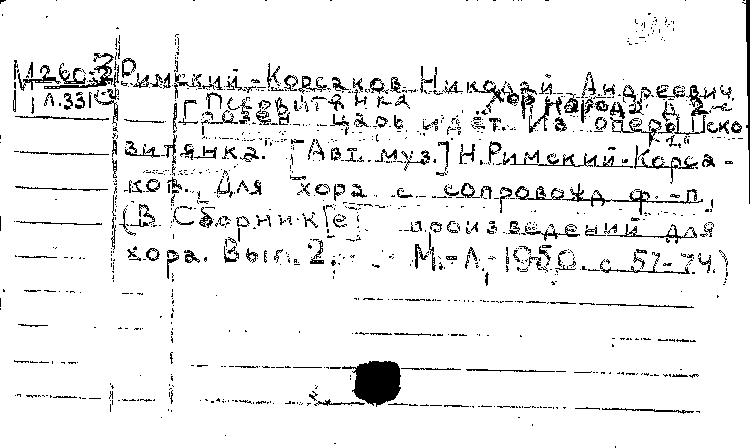 М260-3 Римский-Корсаков Николай Андреевич
Л.331 Псковитянка Хор народа
Грозен царь идёт. Из оперы "Пско-
витянка." [Авт. муз.] Н. Римский-Корса-
ков, Для хора с сопровожд ф.-п,
(В Сборник[е] произведений для
хора. Вып. 2. М.-Л, 1950. с 57-74.)